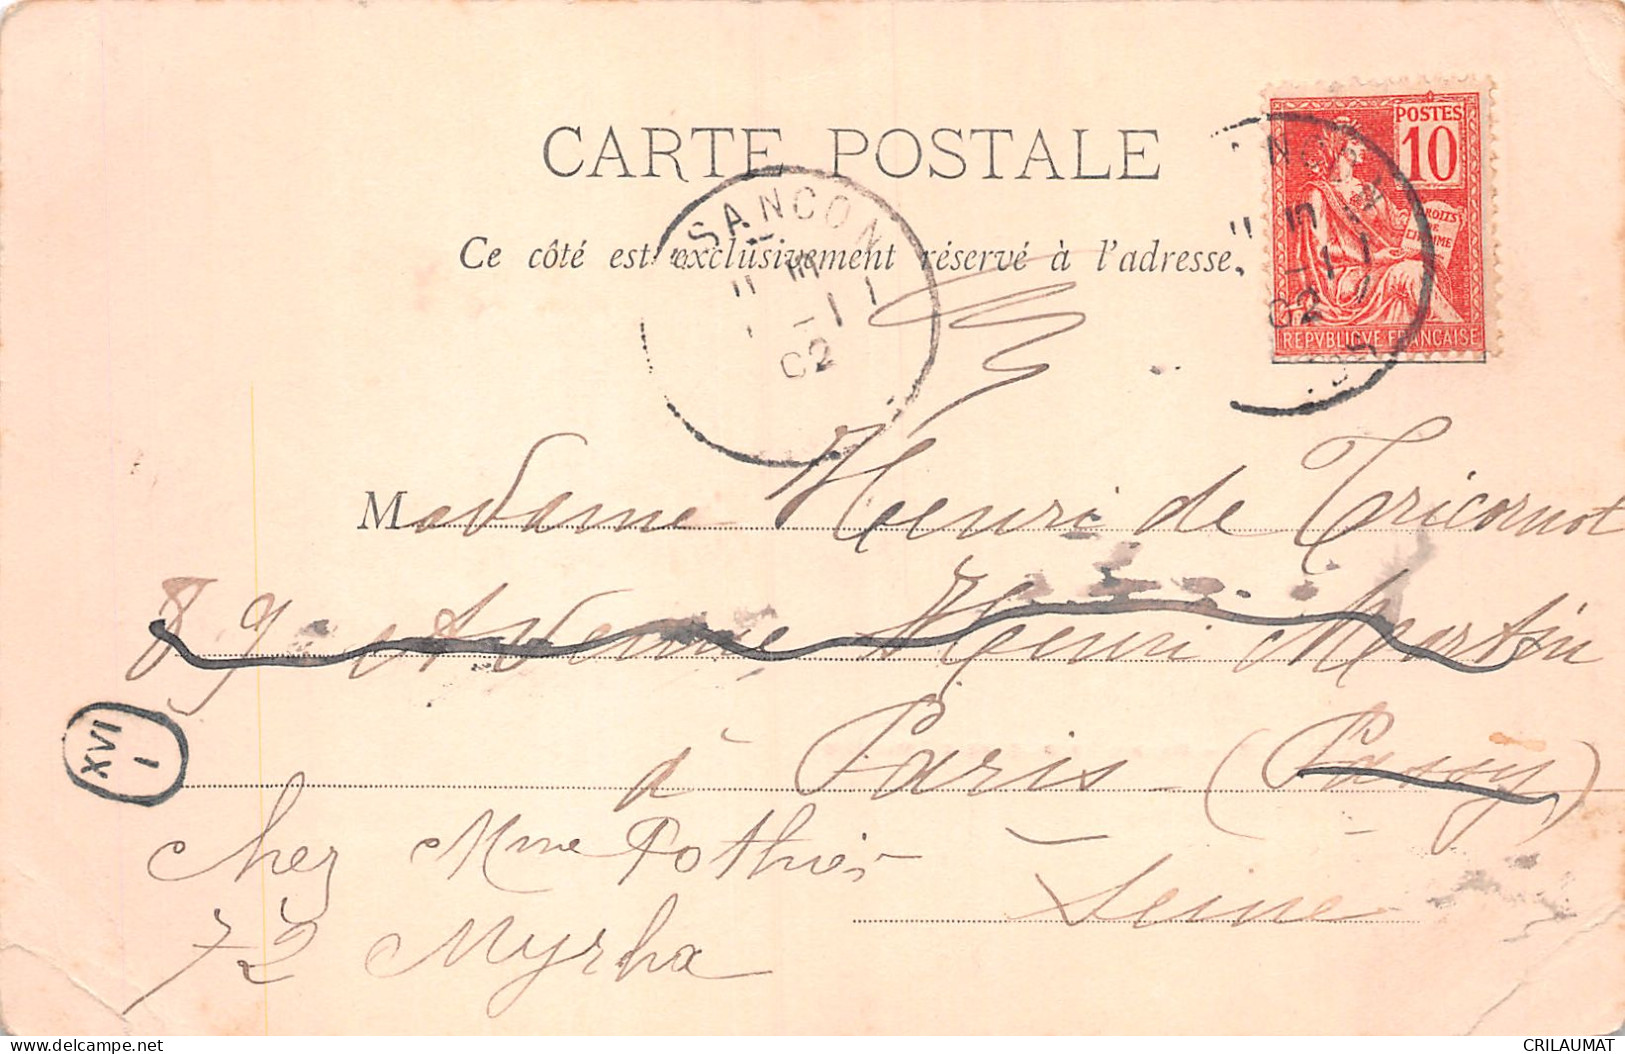 CARTE POSTALE
Ce côté est exclusivement réservé à l'adresse.
POSTES
10
DROITS DE L'HOMME
REPVBLIQVE FRANÇAISE
SANCON
11
-1
02
11
-1
02
Madame Henri de Tricornot
89 Avenue Henri Martin
à Paris (Passy)
Seine
XVI
1
chez Mme Pothier
72 Myrha
CRILAUMAT